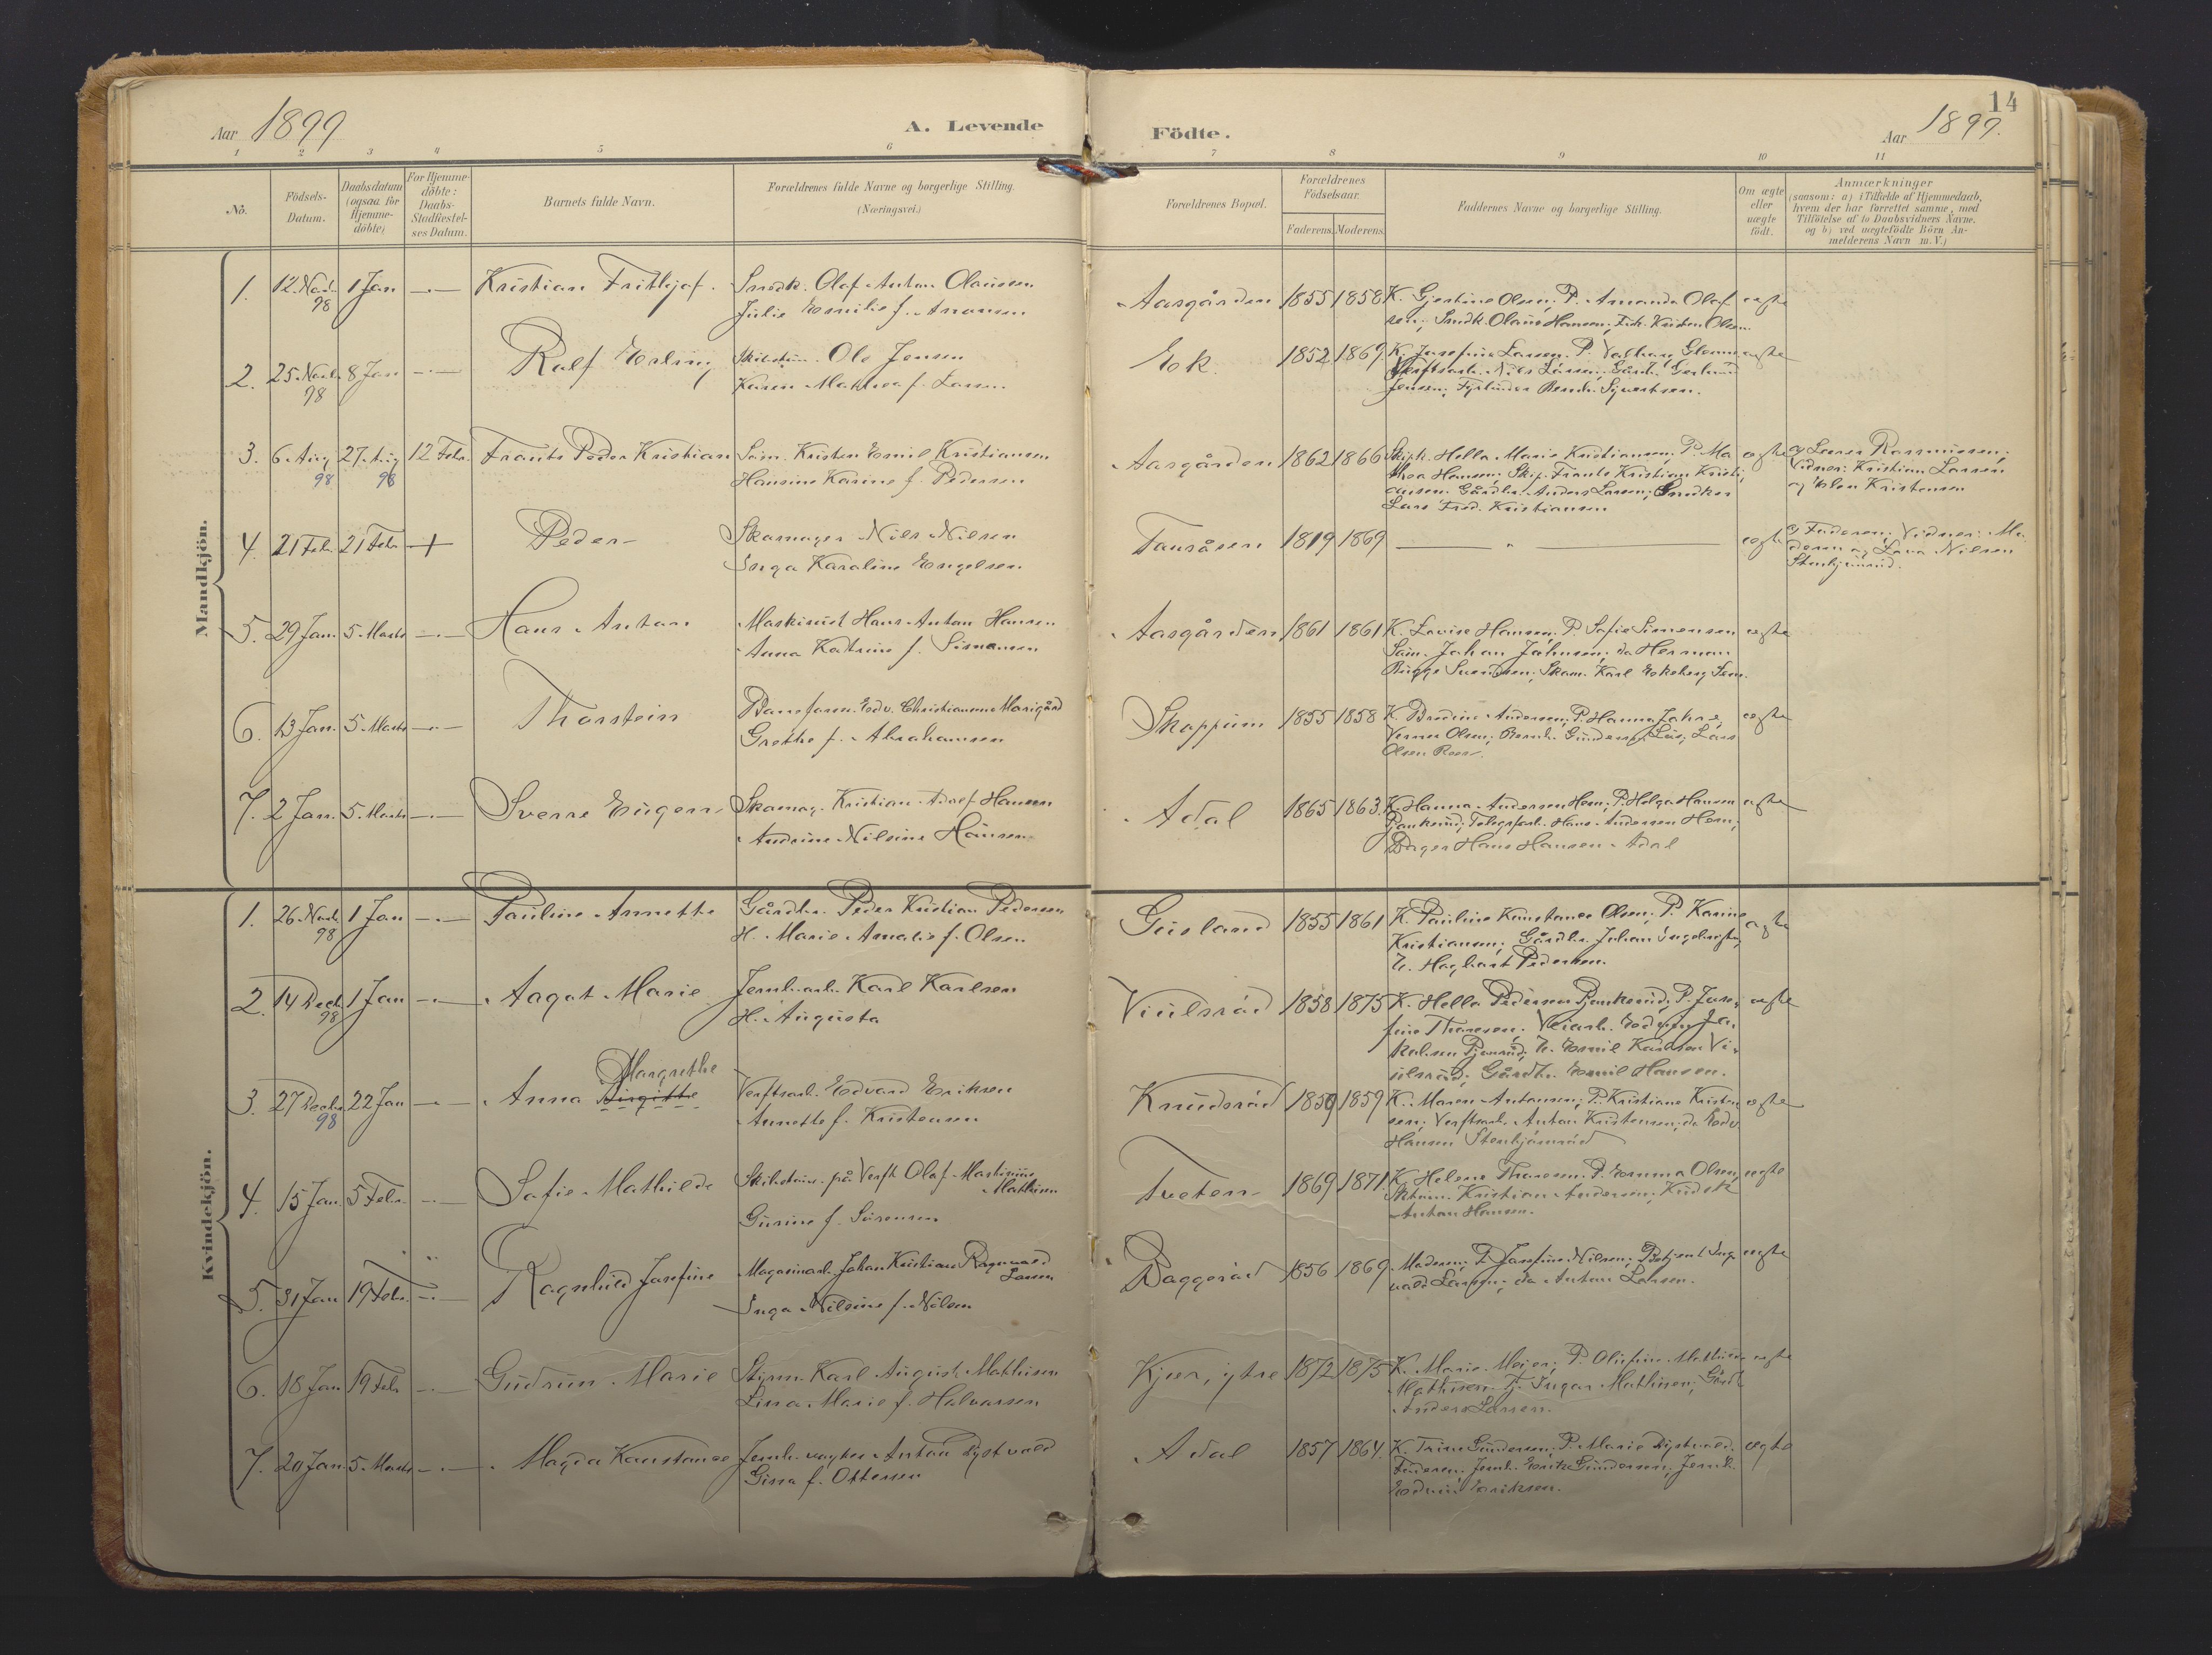 14
Aar 1899
A. Levende Födte.
Aar 1899.
1 2 3 4 5 6 7 8 9 10 11
No.
Födsels-
Datum.
Daabsdatum
(ogsaa for
Hjemme-
döbte)
For Hjemme-
döbte:
Daabs-
Stadfæstel-
ses Datum.
Barnets fulde Navn.
Forældrenes fulde Navne og borgerlige Stilling.
(Næringsvei.)
Forældrenes Bopæl.
Forældrenes
Födselsaar.
Faderens. Moderens.
Faddernes Navne og borgerlige Stilling.
Om ægte
eller
uægte
födt.
Anmærkninger
(saasom: a) i Tilfælde af Hjemmedaab,
hvem der har forrettet samme, med
Tilföielse af to Daabsvidners Navne.
og b) ved uægtefödte Börn An-
melderens Navn m. V.)
Mandkjön.
1. 12. Novb. 98 1 Jan -.- Kristian Frithjof.
Snedk. Olaf Anton Olausen
Julie Emilie f. Amonsen
Aasgården 1855 1858
K. Gjertine Olsen; P. Amanda Olaf-
sen; Snedk. Olaus Hansen; Kristen Olsen
ægte
2. 25 Novb. 98 8 Jan -.- Rolf Erling
Ole Jensen
Karen Mathea f. Larsen
Eik 1852 1869
K. Josefine Larsen. P.
Verftsarb. Nils Larsen; Gårdb.
Jensen; Bernh. Syvertsen.
ægte
3. 6 Aug 98 27 Aug 98 12 Febr. Frants Peder Kristian
Söm. Kristen Emil Kristiansen
Hansine Karine f. Pedersen
Aasgården 1862 1866
Hella Marie Kristiansen; P. Ma-
thea Hansen; Skip. Frants Kristian Kristi-
ansen. Gårdbr. Anders Larsen; Snedker
Lars Fred. Kristiansen
ægte
a) Rasmussen.
Vidner: Kristian Larsen
og Kristensen
4. 21 Feb. 21 Febr + Peder
Skomager Nils Nilsen
Inga Karoline Engelsen
1819 1869
— " —
ægte
a) Faderen; Vidner: Mo-
deren og Nilsen
5. 29 Jan. 5 Marts -.- Hans Anton
Maskinist Hans Anton Hansen
Anna Katrine f. Simonsen
Aasgården 1861 1861
K. Lovise Hansen; P. Sofie Simonsen
Söm. Johan Johnsen; do Herman
Bugge Svendsen; Skom. Karl Ekeberg Sem.
ægte
6. 13 Jan. 5 Marts -.- Thorstein
Edv. Christiansen
Grethe f. Abrahamsen
Skoppum 1855 1858
K. Andersen; P. Hanna Jahre,
Verner Olsen; Bernh. Gunders; Lars
Olsen
ægte
7. 2 Jan. 5. Marts -.- Sverre Eugen
Skomag. Kristian Adolf Hansen
Andrine Nilsine Hansen
Adal 1865 1863
K. Hanna Andersen Hem; P. Helga Hansen
Telegrfarb. Hans Andersen Hem;
Bager Hans Hansen Adal
ægte
Kvindekjön.
1. 26 Novb. 98 1 Jan -.- Pauline Annette
Gårdbr. Peder Kristian Pedersen
H. Marie Amalie f. Olsen
Gusland 1855 1861
K. Pauline Konstanse Olsen; P. Karine
Kristiansen; Gårdbr. Johan
U. Hagbart Pedersen.
ægte
2. 14 Decb. 98 1 Jan -.- Aagot Marie
Jernb.arb. Karl Karlsen
H. Augusta
Viulsröd 1858 1875
K. Hella Pedersen; P. Jose-
fine Thoresen. Veiarb.
U. Emil Karlsen Vi-
ulsröd; Gårdbr. Emil Hansen.
ægte
3. 27 Decbr 98 22 Jan -.- Anna Birgitte Margrethe
Verftsarb. Edvard Eriksen
Annette f. Kristensen
Knudsröd 1859 1859
K. Maren Antonsen; P. Kristiane Kristen-
sen; Verftsarb. Anton Kristensen; do Edv.
Hansen
ægte
4. 15 Jan. 5 Febr. -.- Sofie Mathilde
på Verft Olaf Martinius
Mathisen
Gurine f. Sörensen
Tveten 1869 1871
K. Helene Thoresen; P. Emma Olsen;
Kristian Andersen;
Anton Hansen.
ægte
5. 31 Jan 19 Febr. -.- Ragnhild Josefine
Magasinarb. Johan Kristian Ragnvald
Larsen
Inga Nilsine f. Nilsen
Baggeröd 1856 1869
Moderen; P. Josefine Nilsen; Betjent Ing-
vald Larsen; do Anton Larsen.
ægte
6. 18 Jan 19 Febr -.- Gudrun Marie
Styrm. Karl August Mathisen
Lina Marie f. Halvorsen
Kjær, ytre 1872 1875
K. Marie Meier; P. Olufine Mathisen
Mathisen. Ingar Mathisen; Gårdb.
Anders Larsen.
ægte
7. 20 Jan. 5 Marts -.- Magda Konstanse
Jernb. vogter Anton Dystvold
Gina f. Ottersen
Adal 1857 1864
K. Trine Gundersen; P. Marie Dystvold.
Faderen. Jernb. Gundersen; Jernb.
Edvin Eriksen.
ægte